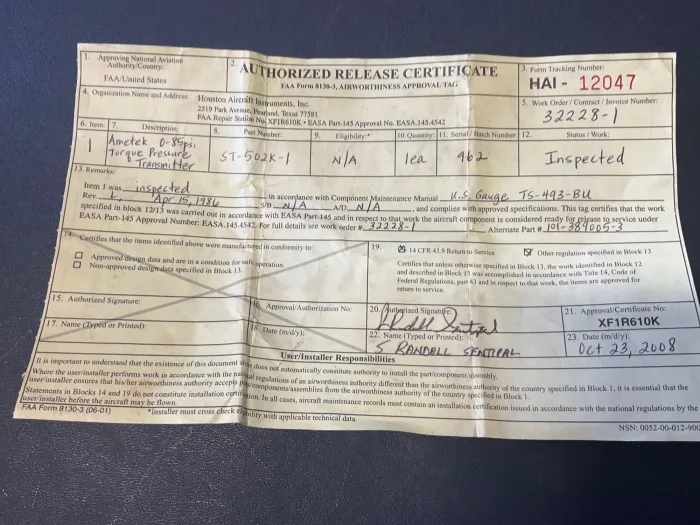 1. Approving National Aviation Authority/Country:
FAA/United States
2. AUTHORIZED RELEASE CERTIFICATE
FAA Form 8130-3, AIRWORTHINESS APPROVAL TAG
3. Form Tracking Number:
HAI - 12047
4. Organization Name and Address:
Houston Aircraft Instruments, Inc.
2519 Park Avenue, Pearland, Texas 77581
FAA Repair Station No. XF1R610K • EASA Part-145 Approval No. EASA.145.4542
5. Work Order / Contract / Invoice Number:
32228-1
6. Item: 7. Description: 8. Part Number: 9. Eligibility:* 10. Quantity: 11. Serial/ Batch Number: 12. Status / Work:
1 Ametek 0-85psi Torque Pressure Transmitter ST-502K-1 N/A 1ea 962 Inspected
13. Remarks:
Item 1 was inspected in accordance with Component Maintenance Manual U.S. Gauge TS-493-BU
Rev. 1, Apr 15, 1986 S/B N/A A/D N/A, and complies with approved specifications. This tag certifies that the work
specified in block 12/13 was carried out in accordance with EASA Part-145 and in respect to that work the aircraft component is considered ready for release to service under
EASA Part-145 Approval Number: EASA.145.4542. For full details see work order #. 32228-1 Alternate Part # 101-389005-3
14. Certifies that the items identified above were manufactured in conformity to:
Approved design data and are in a condition for safe operation.
Non-approved design data specified in Block 13.
19. 14 CFR 43.9 Return to Service Other regulation specified in Block 13
Certifies that unless otherwise specified in Block 13, the work identified in Block 12
and described in Block 13 was accomplished in accordance with Title 14, Code of
Federal Regulations, part 43 and in respect to that work, the items are approved for
return to service.
15. Authorized Signature:
16. Approval/Authorization No:
20. Authorized Signature:
21. Approval/Certificate No:
XF1R610K
17. Name (Typed or Printed):
18. Date (m/d/y):
22. Name (Typed or Printed):
S RANDALL
23. Date (m/d/y):
Oct 23, 2008
User/Installer Responsibilities
It is important to understand that the existence of this document alone does not automatically constitute authority to install the part/component/assembly.
Where the user/installer performs work in accordance with the national regulations of an airworthiness authority different than the airworthiness authority of the country specified in Block 1, it is essential that the
user/installer ensures that his/her airworthiness authority accepts parts/components/assemblies from the airworthiness authority of the country specified in Block 1.
Statements in Blocks 14 and 19 do not constitute installation certification. In all cases, aircraft maintenance records must contain an installation certification issued in accordance with the national regulations by the
user/installer before the aircraft may be flown.
FAA Form 8130-3 (06-01) *Installer must cross check eligibility with applicable technical data.
NSN: 0052-00-012-900